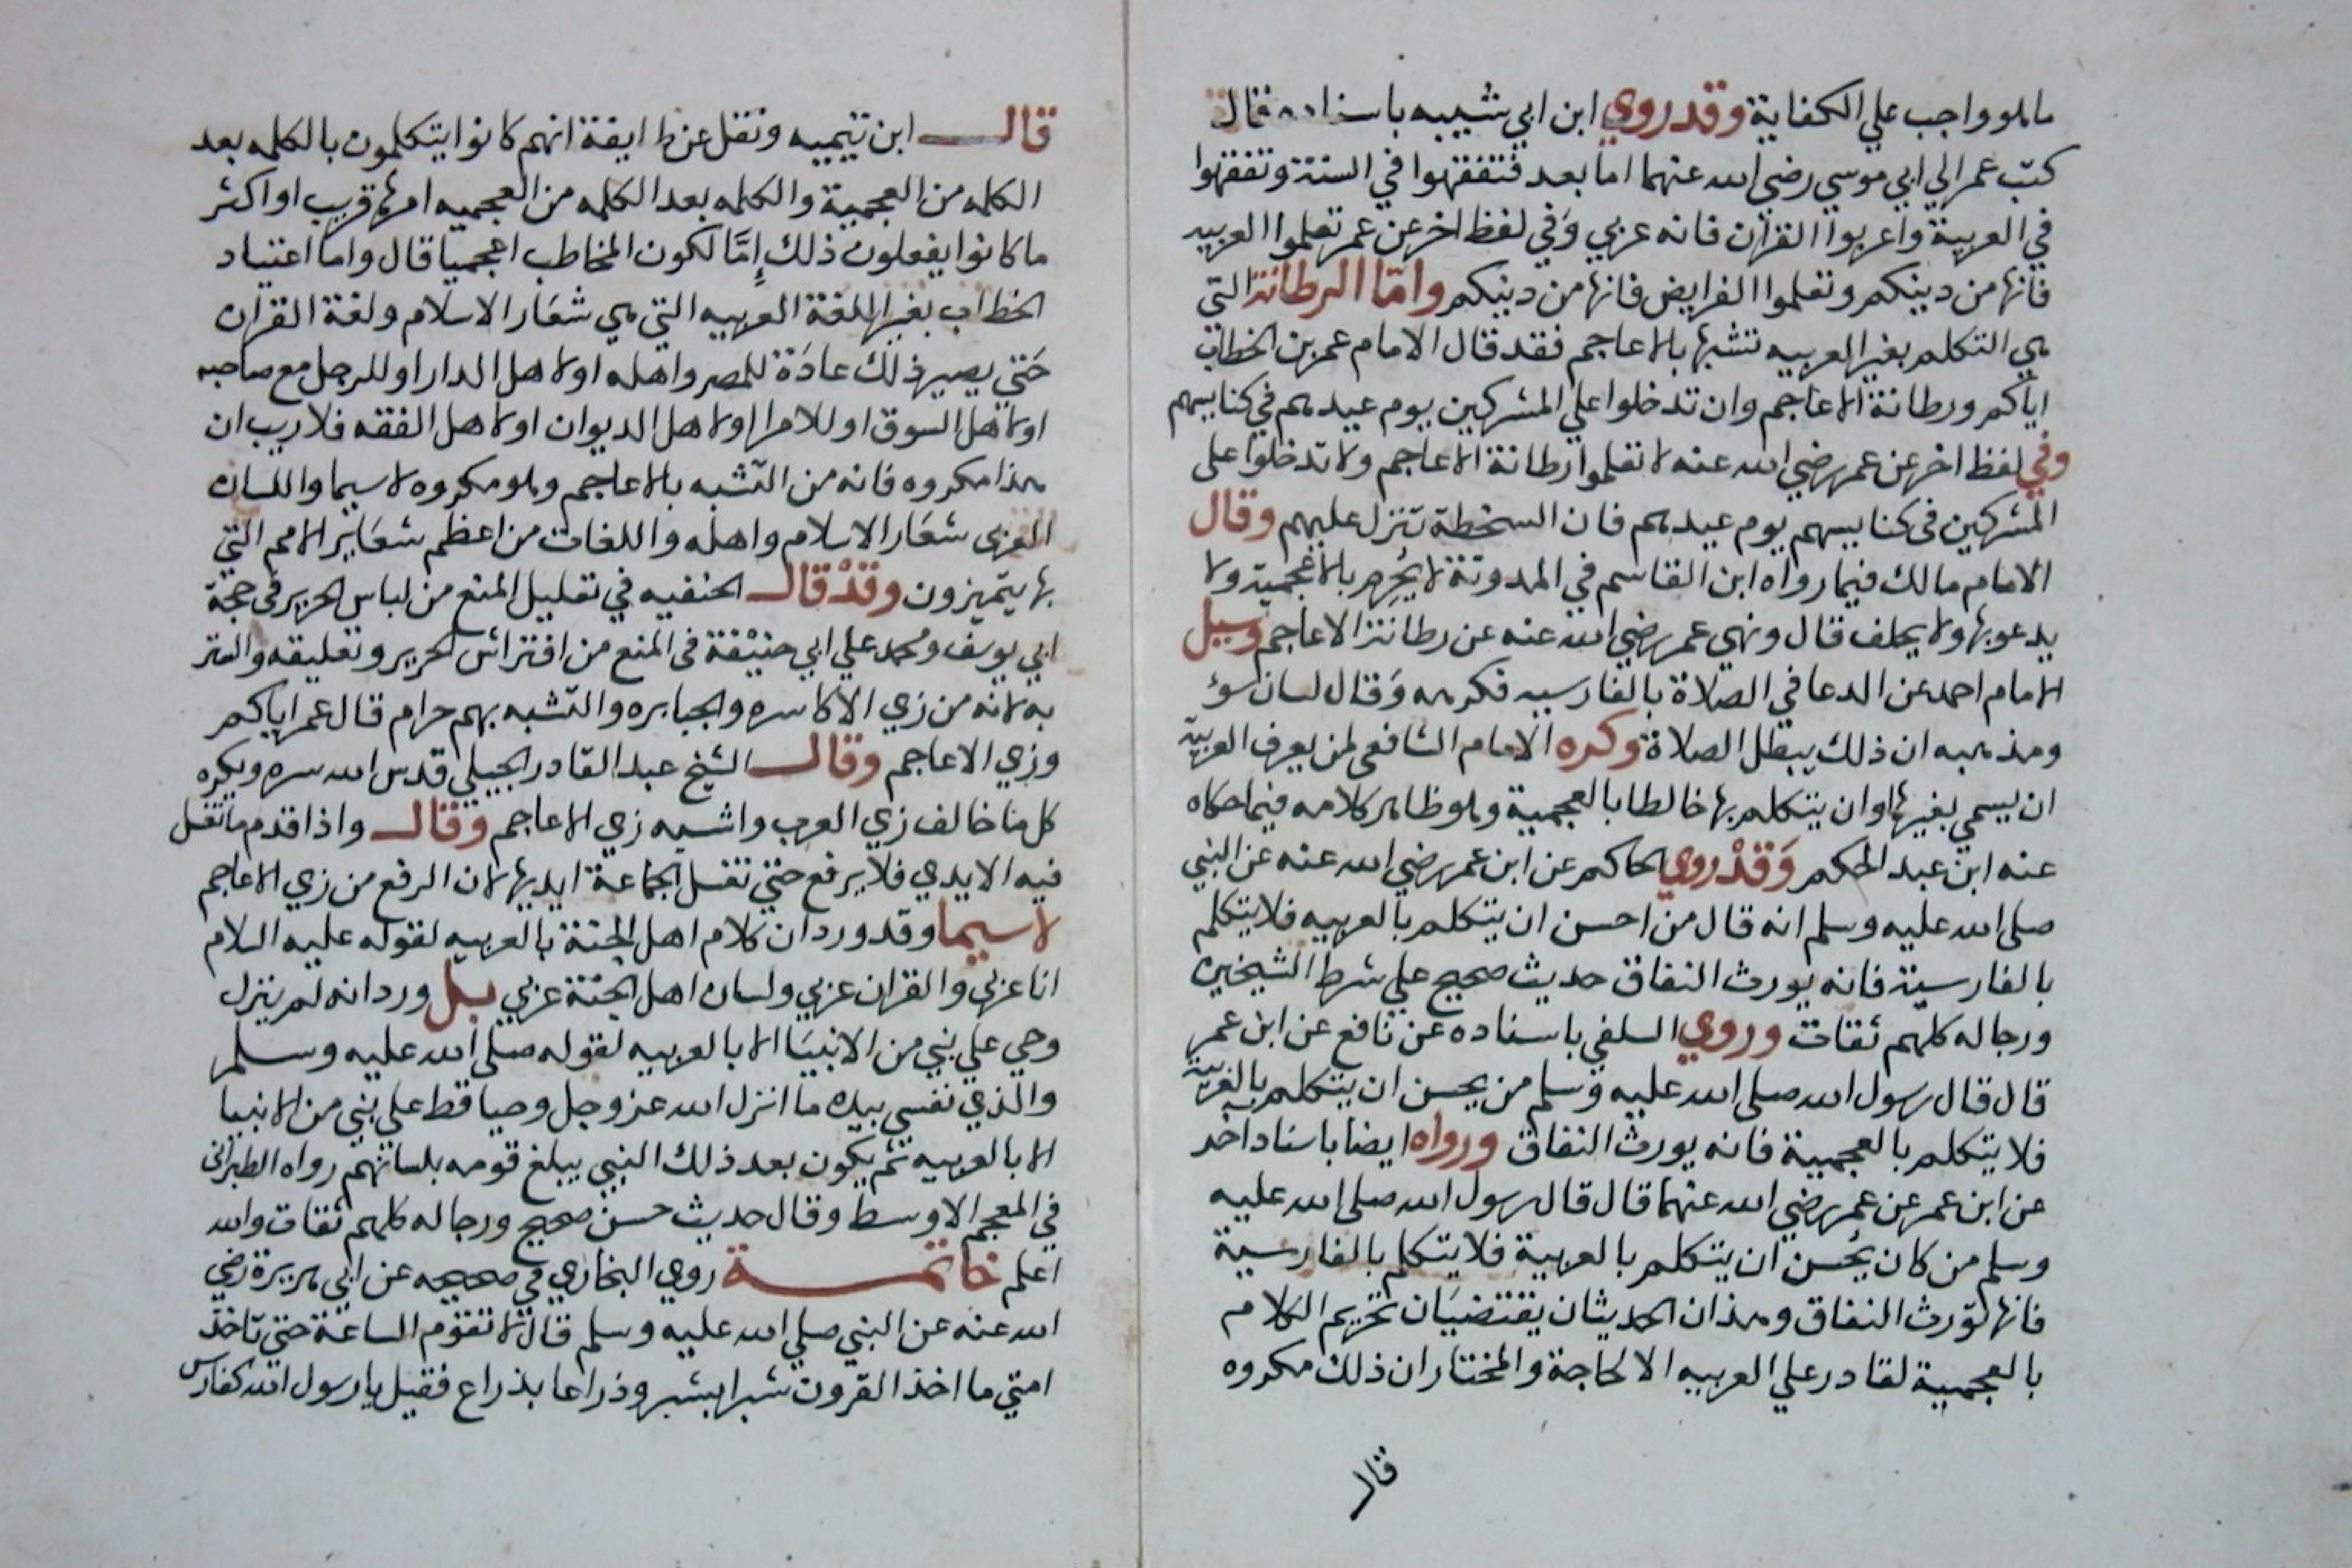 ما هو واجب علي الكفاية وقد روي ابن ابي شيبه باسناده قال
كتب عمر الي ابي موسي رضي الله عنهما اما بعد فتفقهوا في السنة وتفقهوا
في العربية واعربوا القران فانه عربي وفي لفظ اخر عن عمر تعلموا العربيه
فانها من دينكم وتعلموا الفرايض فانها من دينكم واما الرطانة التي
هي التكلم بغير العربيه تشبها بالاعاجم فقد قال الامام عمر بن الخطاب
اياكم ورطانة الاعاجم وان تدخلوا علي المشركين يوم عيدهم في كنايسهم
وفي لفظ اخر عن عمر رضي الله عنه لا تعلموا رطانة الاعاجم ولا تدخلوا على
المشركين في كنايسهم يوم عيدهم فان السخطة تنزل عليهم وقال
الامام مالك فيما رواه ابن القاسم في المدونة لا يُحرِم بالاعجمية ولا
يدعو بها ولا يحلف قال ونهى عمر رضي الله عنه عن رطانة الاعاجم وسيل
الامام احمد عن الدعا في الصلاة بالفارسيه فكرهه وقال لسان سوء
ومذهبه ان ذلك يبطل الصلاة وكره الامام الشافعي لمن يعرف العربية
ان يسمي بغيرها وان يتكلم بها خالطا بالعجمية وهو ظاهر كلامه فيما حكاه
عنه ابن عبد الحكم وَقَدْ روي الحاكم عن ابن عمر رضي الله عنه عن النبي
صلى الله عليه وسلم انه قال من احسن ان يتكلم بالعربيه فلا يتكلم
بالفارسية فانه يورث النفاق حديث صحيح علي شرط الشيخين
ورجاله كلهم ثقات وروي السلفي باسناده عن نافع عن ابن عمر
قال قال رسول الله صلى الله عليه وسلم من يحسن ان يتكلم بالعربية
فلا يتكلم بالعجمية فانه يورث النفاق ورواه ايضا باسناد اخر
عن ابن عمر عن عمر رضي الله عنهما قال قال رسول الله صلى الله عليه
وسلم من كان يُحسن ان يتكلم بالعربية فلا يتكلم بالفارسية
فانها تورث النفاق وهذان الحديثان يقتضيَان تحريم الكلام
بالعجمية لقادر علي العربيه الا لحاجة والمختار ان ذلك مكروه
قال
قال ابن تيمييه ونقل عن طايفة انهم كانوا يتكلمون بالكلمه بعد
الكلمه من العجمية والكلمه بعد الكلمه من العجميه امرها قريب او اكثر
ما كانوا يفعلون ذلك إمَّا لكون المخاطب اعجميا قال واما اعتياد
الخطاب بغير اللغة العربيه التي هي شعَار الاسلام ولغة القران
حَتي يصير ذلك عادَة للمصر واهله او لاهل الدار او للرجل مع صاحبه
او لاهل السوق او للامرا او لاهل الديوان او لاهل الفقه فلا ريب ان
هذا مكروه فانه من التشبه بالاعاجم وهو مكروه لا سيما واللسان
العزبى شعَار الاسلام واهله واللغات من اعظم شعَاير الامم التي
بها يتميزون وقَدْ قال الحنفيه في تعليل المنع من لباس الحرير في حجة
ابي يوسف ومحمد علي ابي حنيْفة في المنع من افتراش الحرير وتعليقه والستر
به لانه من زي الاكاسره والجبابره والتشبه بهم حرام قال عمر اياكم
وزي الاعاجم وقال الشيخ عبد القادر الجيلي قدس الله سره ويكره
كل ما خالف زي العرب واشبه زي الاعاجم وقال واذا قدم ما تغسل
فيه الايدي فلا يرفع حتي تغسل الجماعة ايديها لان الرفع من زي الاعاجم
لا سيما وقد ورد ان كلام اهل الجنة بالعربيه لقوله عليه السلام
انا عربي والقران عربي ولسان اهل الجنة عربي بل ورد انه لم ينزل
وحي علي نبي من الانبيَا الا بالعربيه لقوله صلى الله عليه وسلم
والذي نفسي بيده ما انزل الله عز وجل وحيا قط علي نبي من الانبيا
الا بالعربيه ثم يكون بعد ذلك النبي يبلغ قومه بلسانهم رواه الطبرانى
في المعجم الاوسط وقال حديث حسن صحيح ورجاله كلهم ثقات والله
اعلم خاتمة روي البخاري في صحيحه عن ابي هريرة رضي
الله عنه عن النبي صلى الله عليه وسلم قال لا تقوم الساعة حتي تاخذ
امتي ما اخذ القرون شبرا بشبر وذراعا بذراع فقيل يا رسول الله كفارس